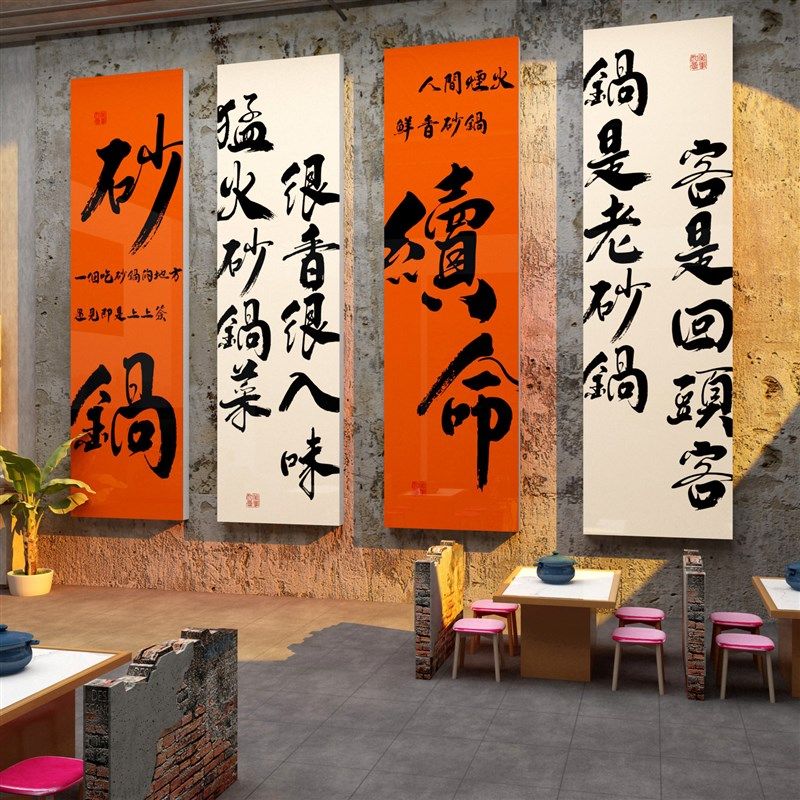 砂
一個吃砂鍋的地方
遇見即是上上签
鍋
猛火砂鍋菜
很香很入味
人間煙火
鮮香砂鍋
續命
鍋是老砂鍋
客是回頭客